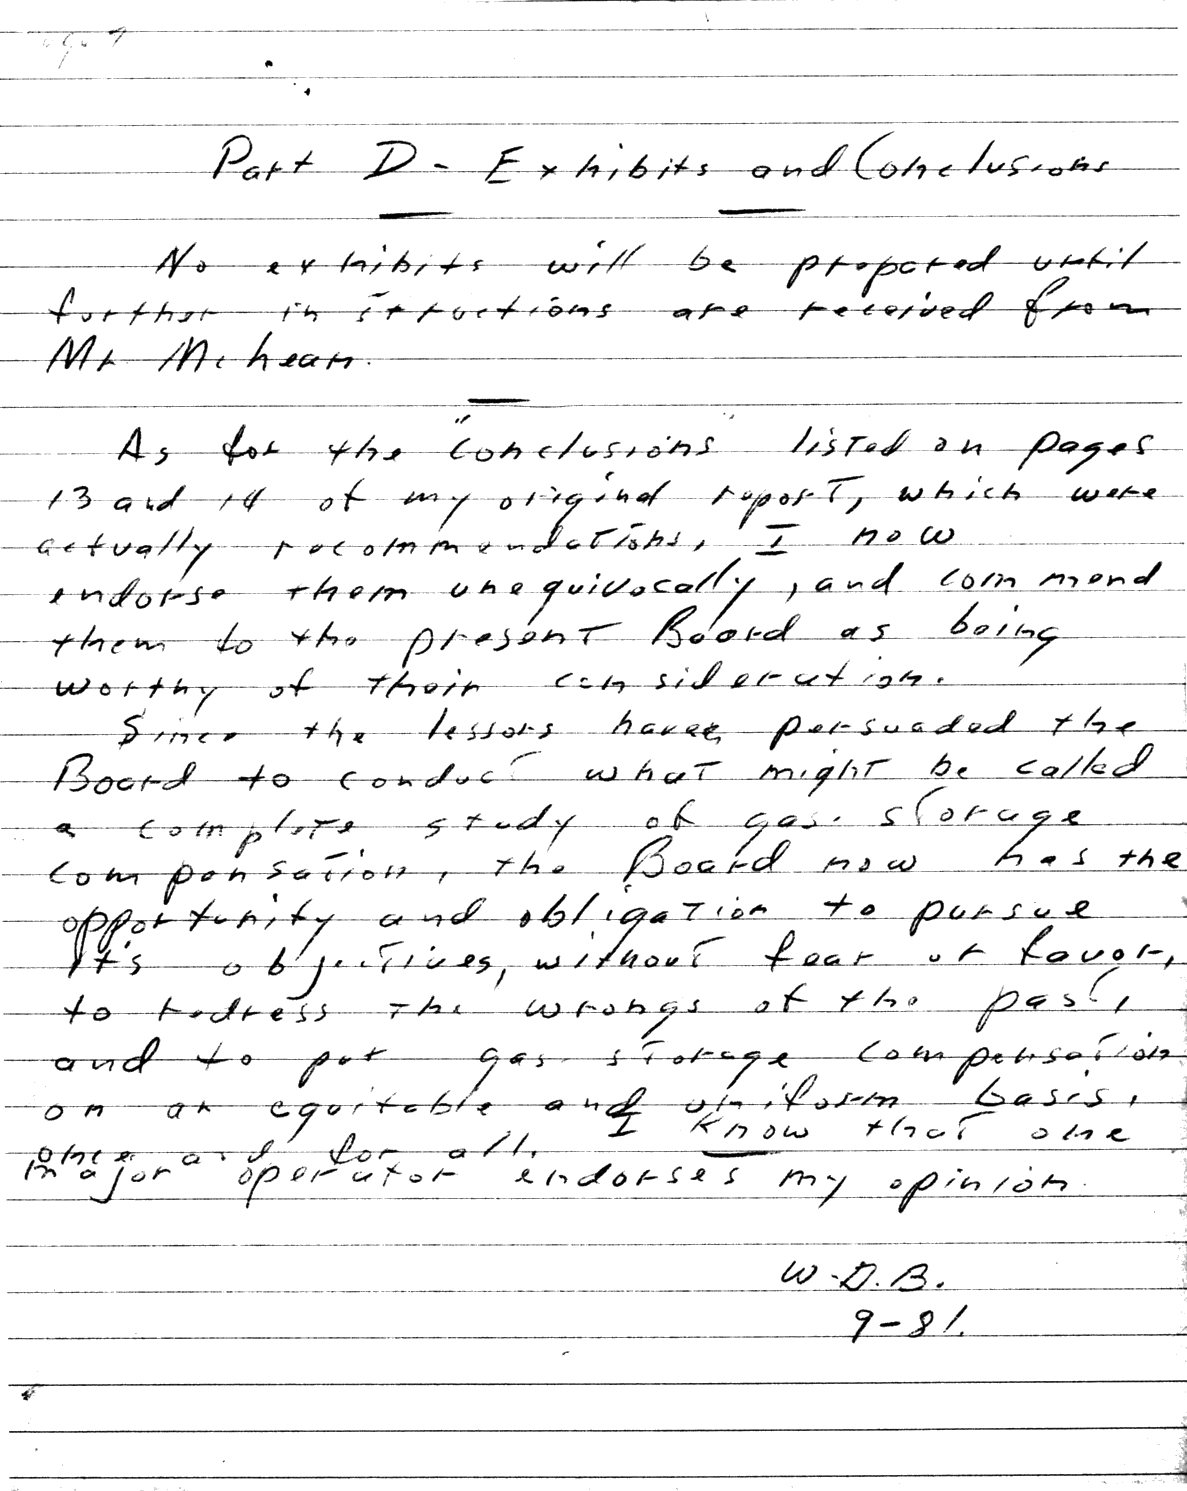 Part D - Exhibits and Conclusions
No exhibits will be prepared until
further instructions are received from
Mr
As for the "Conclusions" listed on pages
13 and 14 of my original report, which were
actually recommendations, I now
endorse them unequivocally, and commend
them to the present Board as being
worthy of their consideration.
Since the lessors have persuaded the
Board to conduct what might be called
a complete study of gas storage
compensation, the Board now has the
opportunity and obligation to pursue
it's objectives, without fear or favor,
to redress the wrongs of the past,
and to put gas storage compensation
on an equitable and uniform basis,
once and for all. I know that one
major operator endorses my opinion.
W.D.B.
9-81.